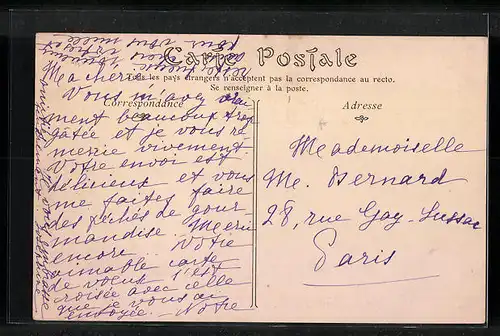 Carte Postale
Tous les pays étrangers n'acceptent pas la correspondance au recto.
Se renseigner à la poste.
Correspondance
Adresse
Ma chère
Vous m'avez vrai
ment beaucoup trop
gâtée et je vous re
mercie vivement.
Votre envoi est
délicieux et vous
me faites faire
des péchés de gour
mandise. Merci
encore. Votre
aimable carte
de voeux s'est
croisée avec celle
que je vous ai
envoyée. Notre
Mademoiselle
M. Bernard
28, rue Gay-Lussac
Paris